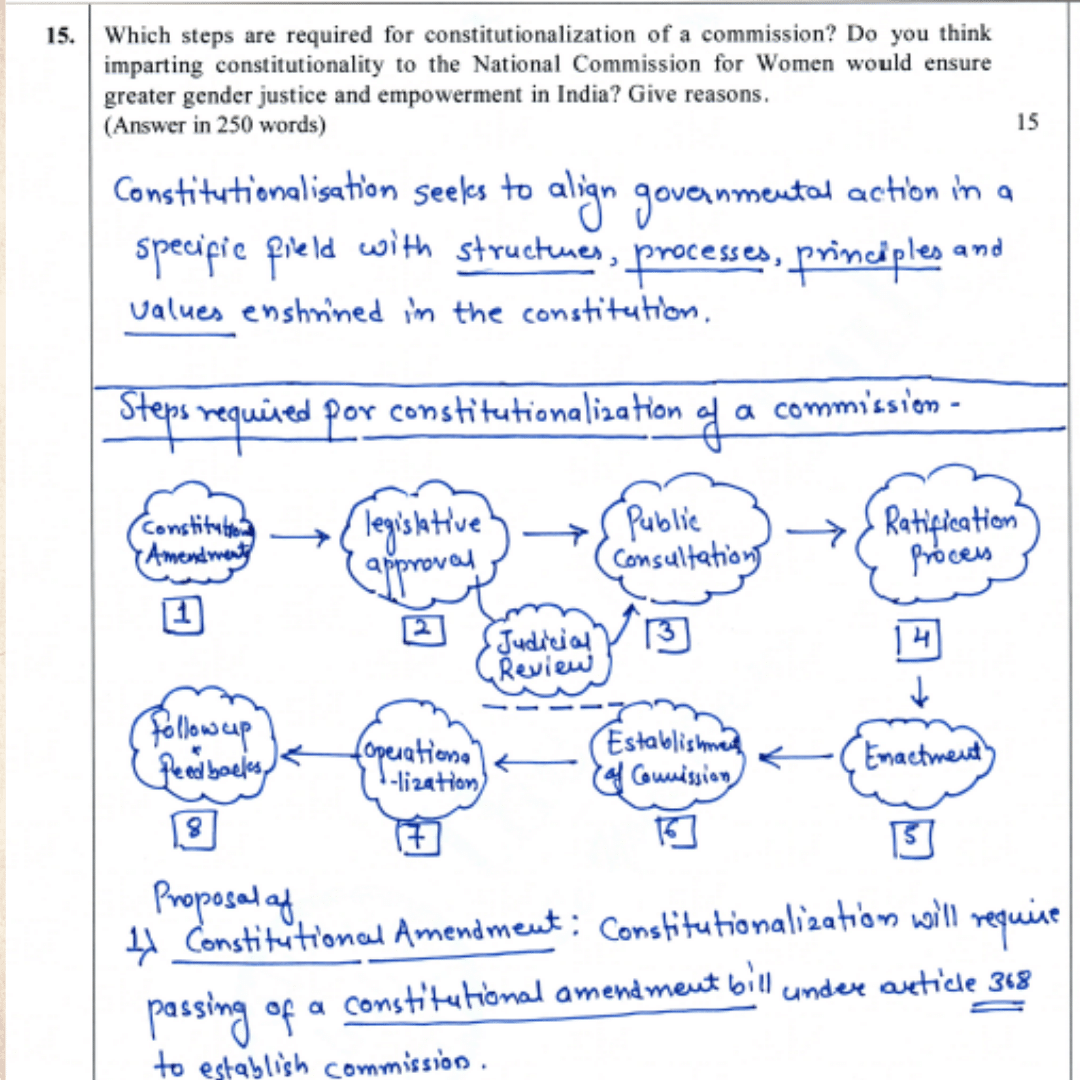 15. Which steps are required for constitutionalization of a commission? Do you think
imparting constitutionality to the National Commission for Women would ensure
greater gender justice and empowerment in India? Give reasons.
(Answer in 250 words) 15
Constitutionalisation seeks to align governmental action in a
specific field with structures, processes, principles and
values enshrined in the constitution.
Steps required for constitutionalization of a commission -
Constitutional
Amendment
1
legislative
approval
2
Judicial
Review
Public
Consultation
3
Ratification
Process
4
Enactment
5
Establishment
of Commission
6
Operationa
-lization
7
Follow up
&
Feedbacks
8
Proposal of
1) Constitutional Amendment: Constitutionalization will require
passing of a constitutional amendment bill under article 368
to establish commission.